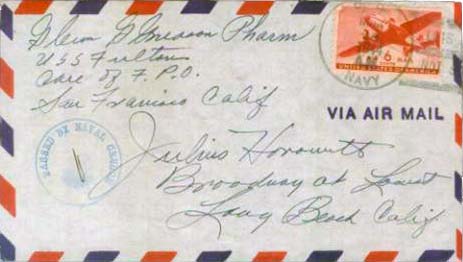 Glenn Gleason Pharm
USS Fulton
Care of F.P.O.
San Francisco Calif
NAVY
6
UNITED STATES OF AMERICA
VIA AIR MAIL
PASSED BY NAVAL CENSOR
Julius Horowitz
Broadway at Locust
Long Beach Calif.